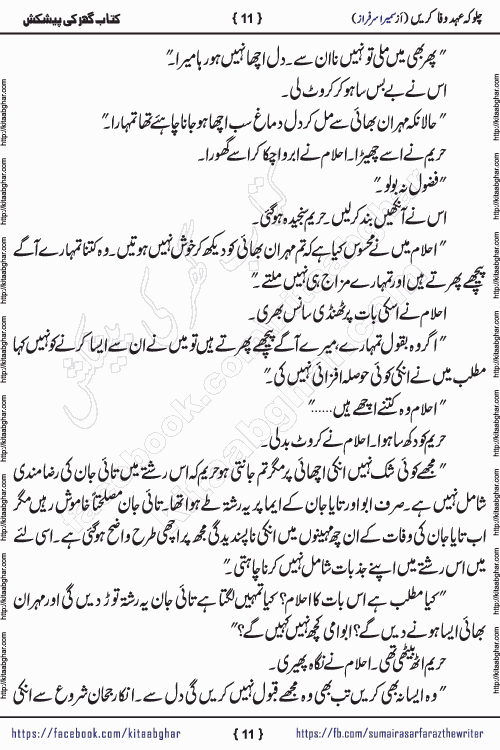 چلو کہ عہد وفا کریں (از سمیرا سرفراز) { 11 } کتاب گھر کی پیشکش
"پھر بھی میں ملی تو نہیں ناان سے۔ دل اچھا نہیں ہو رہا میرا۔"
اس نے بے بس سا ہو کر کروٹ لی۔
"حالانکہ مہران بھائی سے مل کر دل دماغ سب اچھا ہو جانا چاہئے تھا تمہارا۔"
حریم نے اسے چھیڑا۔ احلام نے ابرو اچکا کر اسے گھورا۔
"فضول نہ بولو۔"
اس نے آنکھیں بند کر لیں۔ حریم سنجیدہ ہو گئی۔
"احلام میں نے محسوس کیا ہے کہ تم مہران بھائی کو دیکھ کر خوش نہیں ہوتیں۔ وہ کتنا تمہارے آگے
پیچھے پھرتے ہیں اور تمہارے مزاج ہی نہیں ملتے۔"
احلام نے اسکی بات پر ٹھنڈی سانس بھری۔
"اگر وہ بقول تمہارے، میرے آگے پیچھے پھرتے ہیں تو میں نے ان سے ایسا کرنے کو نہیں کہا
مطلب میں نے انکی کوئی حوصلہ افزائی نہیں کی۔"
"احلام وہ کتنے اچھے ہیں ......"
حریم کو دکھ سا ہوا۔ احلام نے کروٹ بدلی۔
"مجھے کوئی شک نہیں انکی اچھائی پر مگر تم جانتی ہو حریم کہ اس رشتے میں تائی جان کی رضامندی
شامل نہیں ہے۔ صرف ابو اور تایا جان کے ایما پر یہ رشتہ طے ہوا تھا۔ تائی جان مصلحتاً خاموش رہیں مگر
اب تایا جان کی وفات کے ان چھ مہینوں میں انکی ناپسندیدگی مجھ پر اچھی طرح واضح ہو گئی ہے۔ اسی لئے
میں اس رشتے میں اپنے جذبات شامل نہیں کرنا چاہتی۔"
"کیا مطلب ہے اس بات کا احلام؟ کیا تمہیں لگتا ہے تائی جان یہ رشتہ توڑ دیں گی اور مہران
بھائی ایسا ہونے دیں گے؟ ابو امی کچھ نہیں کہیں گے؟"
حریم اٹھ بیٹھی تھی۔ احلام نے نگاہ پھیری۔
"وہ ایسا نہ بھی کریں تب بھی وہ مجھے قبول نہیں کریں گی دل سے۔ انکا رجحان شروع سے انکی
https://facebook.com/kitaabghar { 11 } https://fb.com/sumairasarfarazthewriter
http://kitaabghar.com